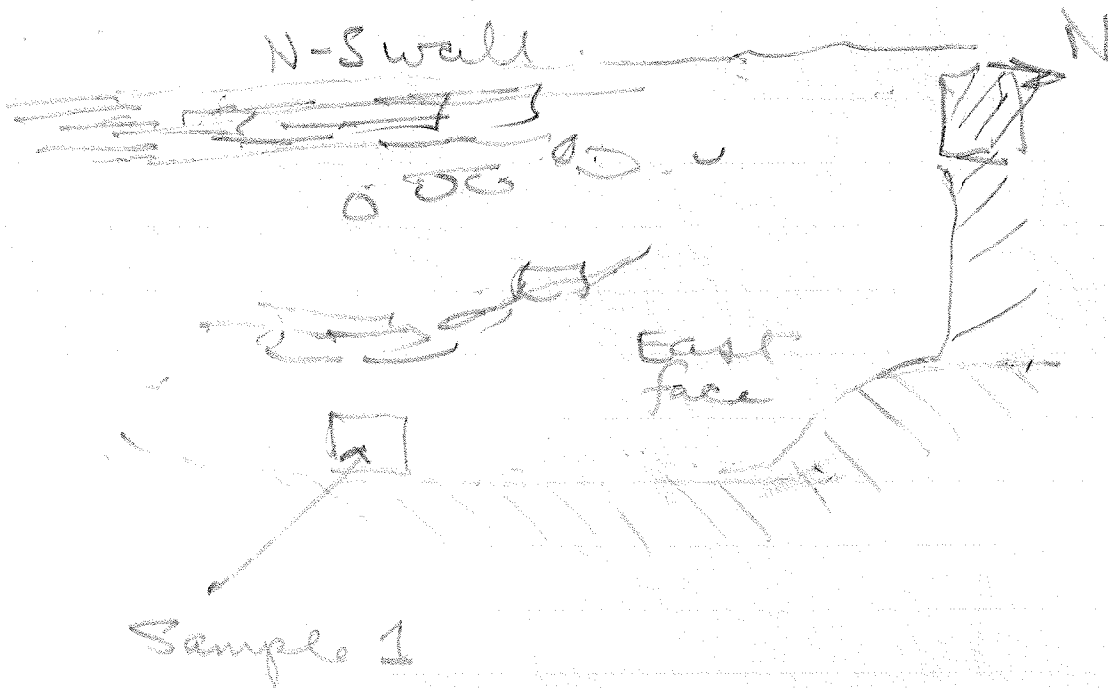 N-S wall
N
East
face
Sample 1